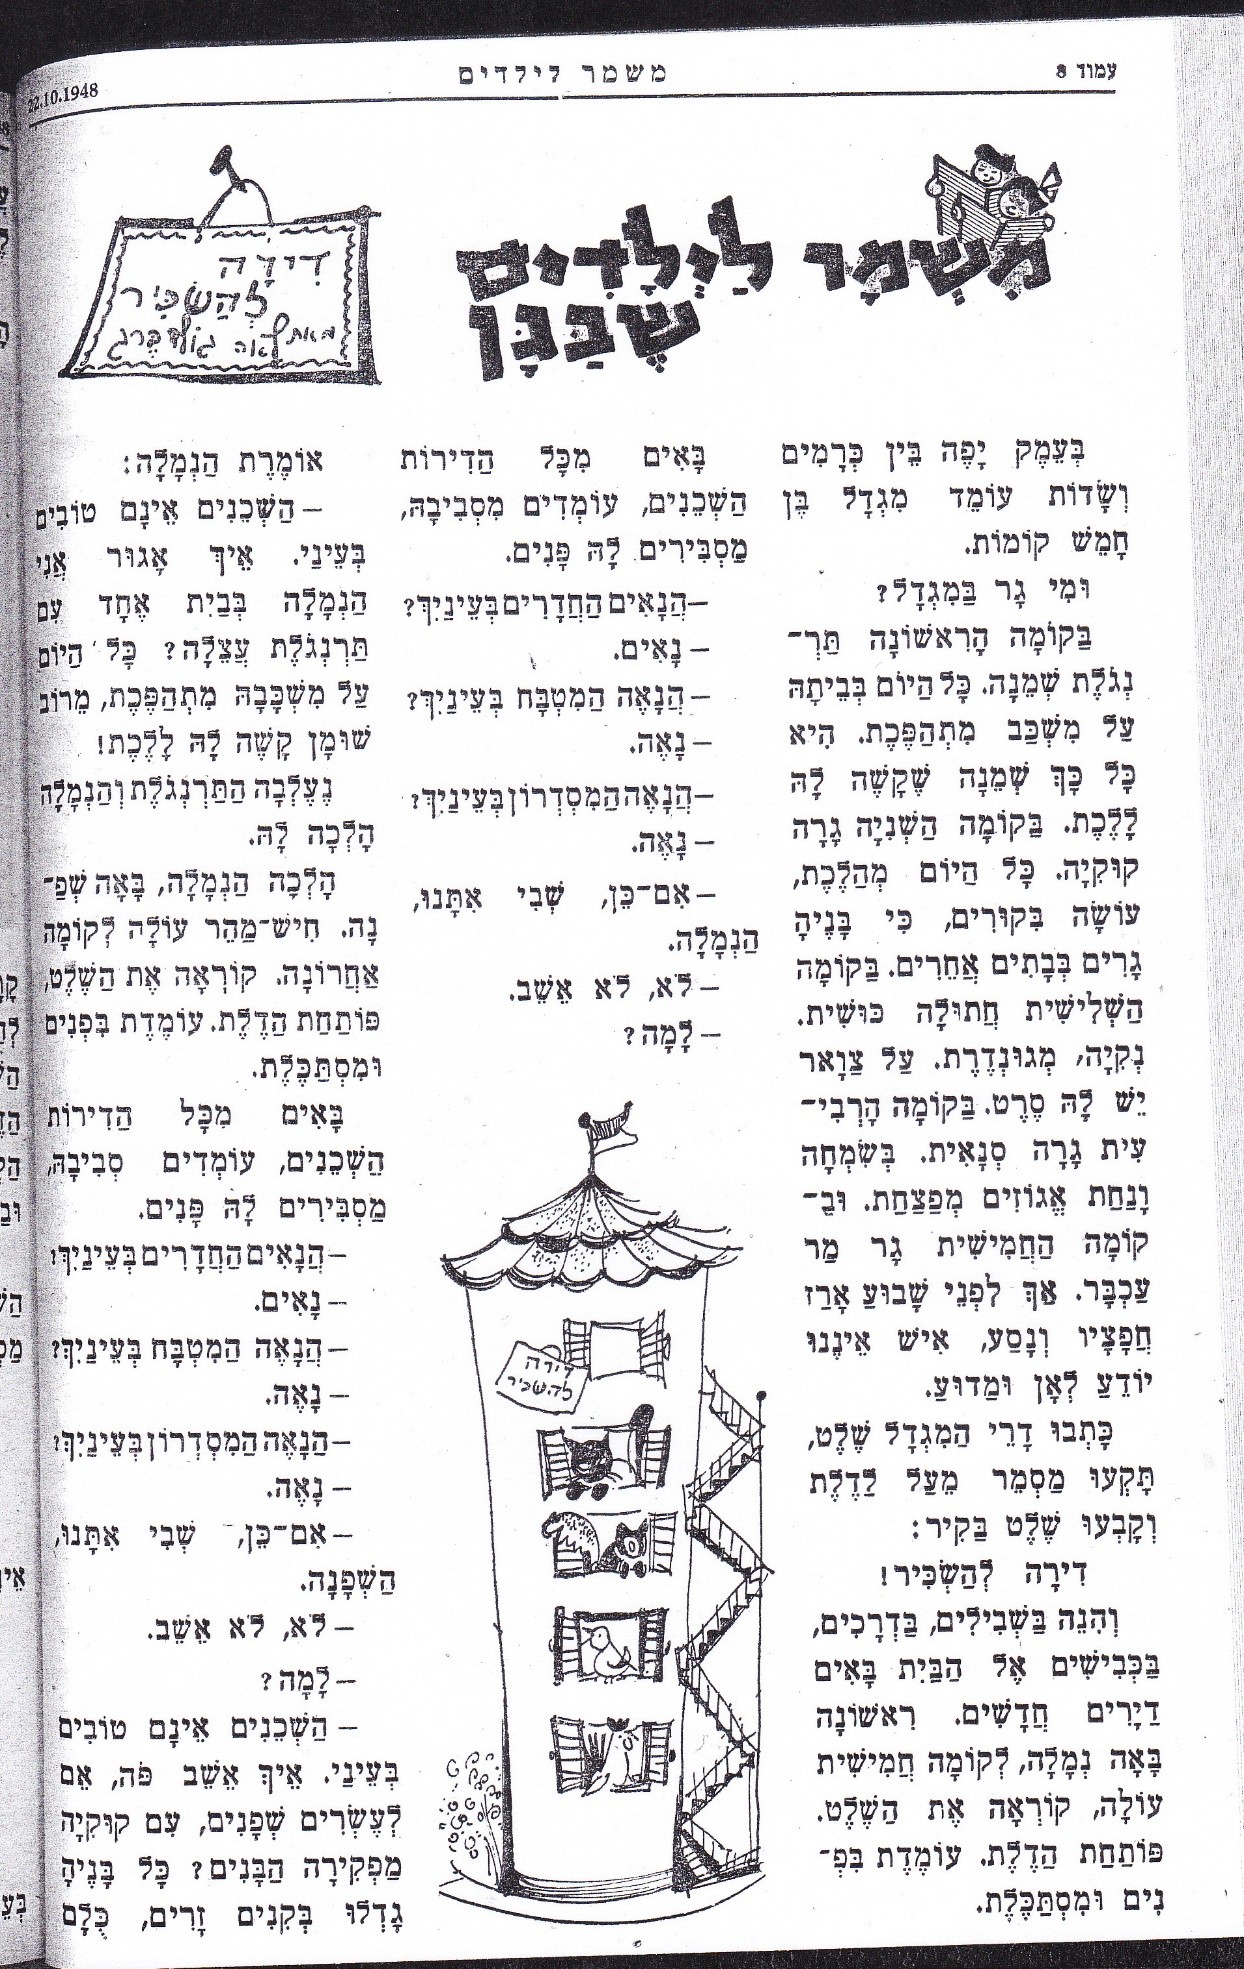 עמוד 8
משמר לילדים
22.10.1948
מִשְׁמָר לַיְלָדִים
שֶׁבַּגָּן
דִּירָה
לְהַשְׂכִּיר
מאת לאה גולדברג
בְּעֵמֶק יָפֶה בֵּין כְּרָמִים
וְשָׂדוֹת עוֹמֵד מִגְדָל בֶּן
חָמֵשׁ קוֹמוֹת.
וּמִי גָר בַּמִגְדָל?
בַּקוֹמָה הָרִאשׁוֹנָה תַּרְ־
נְגֹלֶת שְׁמֵנָה. כָּל הַיוֹם בְּבֵיתָהּ
עַל מִשְׁכַּב מִתְהַפֶּכֶת. הִיא
כָּל כָּךְ שְׁמֵנָה שֶׁקָשֶׁה לָהּ
לָלֶכֶת. בַּקוֹמָה הַשְׁנִיָה גָרָה
קוּקִיָה. כָּל הַיוֹם מְהַלֶכֶת,
עוֹשָׂה בִּקוּרִים, כִּי בָּנֶיהָ
גָרִים בְּבָתִּים אֲחֵרִים. בַּקוֹמָה
הַשְׁלִישִׁית חֲתוּלָה כּוּשִׁית.
נְקִיָה, מְגוּנְדֶרֶת. עַל צַוָאר
יֵשׁ לָהּ סֶרֶט. בַּקוֹמָה הָרְבִי־
עִית גָרָה סְנָאִית. בְּשִׂמְחָה
וָנַחַת אֱגוֹזִים מְפַצַחַת. וּבַ־
קוֹמָה הַחֲמִישִׁית גָר מַר
עַכְבָּר. אַךְ לִפְנֵי שָׁבוּעַ אָרַז
חֲפָצָיו וְנָסַע, אִישׁ אֵינֶנוּ
יוֹדֵעַ לְאָן וּמַדוּעַ.
כָּתְבוּ דָרֵי הַמִגְדָל שֶׁלֶט,
תָּקְעוּ מַסְמֵר מֵעַל לַדֶלֶת
וְקָבְעוּ שֶׁלֶט בַּקִיר:
דִירָה לְהַשְׂכִּיר!
וְהִנֵה בַּשְׁבִילִים, בַּדְרָכִים,
בַּכְּבִישִׁים אֶל הַבַּיִת בָּאִים
דַיָרִים חֲדָשִׁים. רִאשׁוֹנָה
בָּאָה נְמָלָה, לְקוֹמָה חֲמִישִׁית
עוֹלָה, קוֹרְאָה אֶת הַשֶׁלֶט.
פּוֹתַחַת הַדֶלֶת. עוֹמֶדֶת בִּפְ־
נִים וּמִסְתַּכֶּלֶת.
בָּאִים מִכָּל הַדִירוֹת
הַשְׁכֵנִים, עוֹמְדִים מִסְבִיבָהּ,
מַסְבִּירִים לָהּ פָּנִים.
– הֲנָאִים הַחֲדָרִים בְּעֵינַיִךְ?
– נָאִים.
– הֲנָאֶה הַמִטְבָּח בְּעֵינַיִךְ?
– נָאֶה.
– הֲנָאֶה הַמִסְדְרוֹן בְּעֵינַיִךְ?
– נָאֶה.
– אִם־כֵּן, שְׁבִי אִתָּנוּ,
הַנְמָלָה.
– לֹא, לֹא אֵשֵׁב.
– לָמָה?
דירה
להשכיר
אוֹמֶרֶת הַנְמָלָה:
– הַשְׁכֵנִים אֵינָם טוֹבִים
בְּעֵינַי. אֵיךְ אָגוּר אֲנִי
הַנְמָלָה בְּבַיִת אֶחָד עִם
תַּרְנְגֹלֶת עֲצֵלָה? כָּל הַיוֹם
עַל מִשְׁכָּבָהּ מִתְהַפֶּכֶת, מֵרוֹב
שׁוּמָן קָשֶׁה לָהּ לָלֶכֶת!
נֶעֶלְבָה הַתַּרְנְגֹלֶת וְהַנְמָלָה
הָלְכָה לָהּ.
הָלְכָה הַנְמָלָה, בָּאָה שְׁפַ־
נָה. חִישׁ־מַהֵר עוֹלָה לְקוֹמָה
אַחֲרוֹנָה. קוֹרְאָה אֶת הַשֶׁלֶט,
פּוֹתַחַת הַדֶלֶת. עוֹמֶדֶת בִּפְנִים
וּמִסְתַּכֶּלֶת.
בָּאִים מִכָּל הַדִירוֹת
הַשְׁכֵנִים, עוֹמְדִים סְבִיבָהּ,
מַסְבִּירִים לָהּ פָּנִים.
– הֲנָאִים הַחֲדָרִים בְּעֵינַיִךְ?
– נָאִים.
– הֲנָאֶה הַמִטְבָּח בְּעֵינַיִךְ?
– נָאֶה.
– הֲנָאֶה הַמִסְדְרוֹן בְּעֵינַיִךְ?
– נָאֶה.
– אִם־כֵּן, שְׁבִי אִתָּנוּ,
הַשְׁפָנָה.
– לֹא, לֹא אֵשֵׁב.
– לָמָה?
– הַשְׁכֵנִים אֵינָם טוֹבִים
בְּעֵינַי. אֵיךְ אֵשֵׁב פֹּה, אֵם
לְעֶשְׂרִים שְׁפָנִים, עִם קוּקִיָה
מַפְקִירָה הַבָּנִים? כָּל בָּנֶיהָ
גָדְלוּ בְּקִנִים זָרִים, כֻּלָם